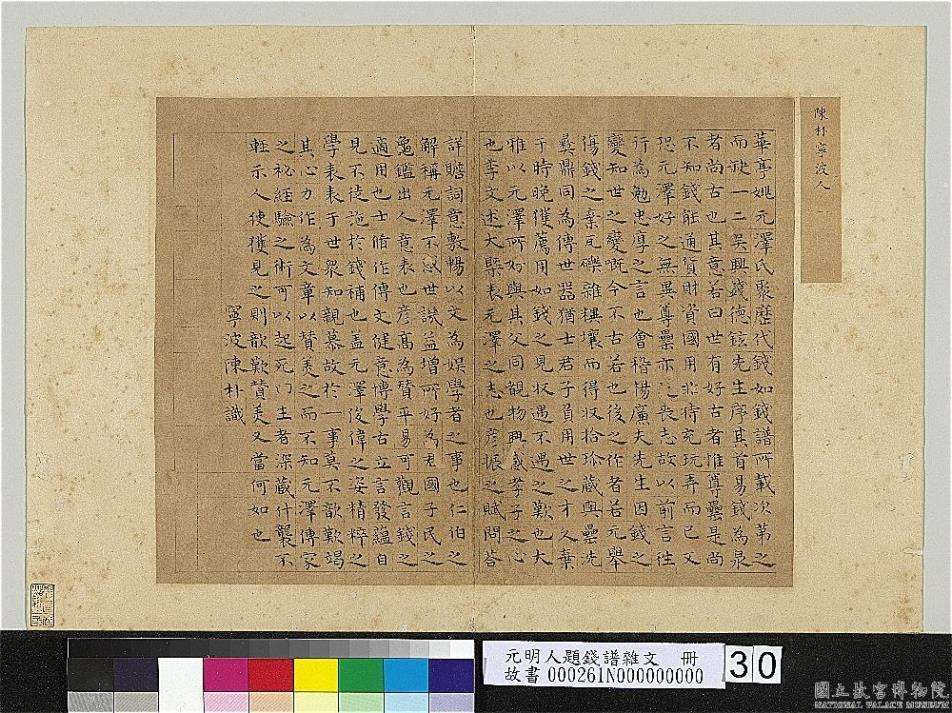 陳朴寧波人
華亭姚元澤氏聚歷代錢如錢譜所載次第之
而缺一二吳興錢德鉉先生序其首易錢為泉
者尚古也其意若曰世有好古者惟尊罍是尚
不知錢能通貨財資國用非特充玩弄而已又
恐元澤好之無異尊罍亦喪志故以前言往
行為勉忠厚之言也會稽楊廉夫先生因錢之
變知世之變嘅今不古若也後之作者若元舉
傷錢之棄瓦礫雜糞壤而得收拾珍藏與罍洗
彝鼎同為傳世器猶士君子負用世之才久棄
于時晚獲薦用如錢之見收遇不遇之歎也大
雅以元澤所好與其父同覩物興感孝子之心
也李文述大槩表元澤之志也彥振之賦問荅
詳贍詞意敷暢以文為娛學者之事也仁伯之
解稱元澤不惑世譏益增所好為君國子民之
龜鑑出人意表也彥高為贊平易可觀言錢之
適用也士脩作傳文健意博學古立言發蘊自
見不徒施於錢補也盖元澤俊偉之姿精粹之
學表表于世衆知親慕故於一事莫不歆歎竭
其心力作為文章以贊美之而不知元澤傳家
之袐經驗之術可以起死囬生者深藏什襲不
輕示人使獲見之則歆歎贊美又當何如也
寧波陳朴識
元明人題錢譜雜文 冊
故書 000261N000000000
30
國立故宮博物院
NATIONAL PALACE MUSEUM